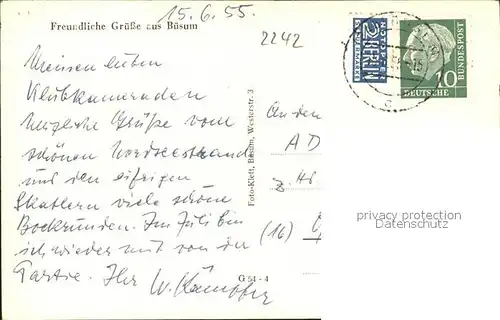 15.6.55.
Freundliche Grüße aus Büsum
2242
Meinen lieben
Klubkameraden
herzliche Grüße vom
schönen Nordseestrand
und den eifrigen
Skatlern viele schöne
Bockrunden. Im Juli bin
ich wieder mit von der
Partie. Ihr W. Kämpfer
G 54 - 4
Foto-Klett, Büsum, Westerstr. 3
An den
AD
z. Hd
(16)
NOTOPFER
2 BERLIN
STEUERMARKE
10
DEUTSCHE
BUNDESPOST
privacy protection
Datenschutz